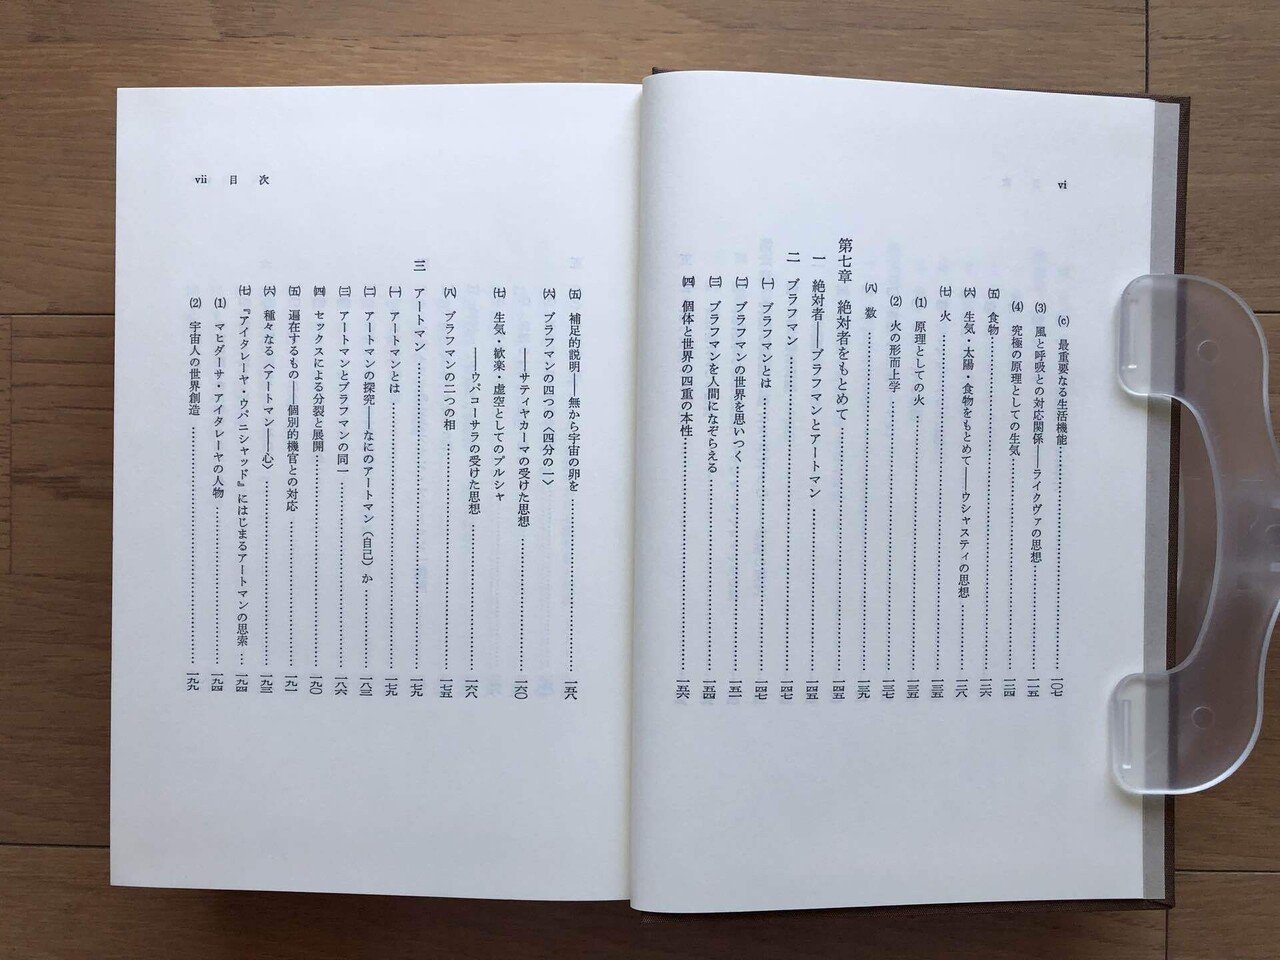 vi
(c) 最重要なる生活機能……一〇七
(3) 風と呼吸との対応関係――ライクヴァの思想……一一五
(4) 究極の原理としての生気……一二四
(五) 食物……一二六
(六) 生気・太陽・食物をもとめて――ウシャスティの思想……一二八
(七) 火……一三五
(1) 原理としての火……一三五
(2) 火の形而上学……一三七
(八) 数……一三九
第七章 絶対者をもとめて……一四五
一 絶対者――ブラフマンとアートマン……一四五
二 ブラフマン……一四七
(一) ブラフマンとは……一四七
(二) ブラフマンの世界を思いつく……一五一
(三) ブラフマンを人間になぞらえる……一五四
(四) 個体と世界の四重の本性……一五六
vii 目次
(五) 補足的説明――無から宇宙の卵を……一五八
(六) ブラフマンの四つの〈四分の一〉
――サティヤカーマの受けた思想……一六〇
(七) 生気・歓楽・虚空としてのプルシャ
――ウパコーサラの受けた思想……一六八
(八) ブラフマンの二つの相……一七五
三 アートマン……一七九
(一) アートマンとは……一七九
(二) アートマンの探究――なにのアートマン(自己)か……一八三
(三) アートマンとブラフマンの同一……一八六
(四) セックスによる分裂と展開……一九〇
(五) 遍在するもの――個別的機官との対応……一九一
(六) 種々なる〈アートマン――心〉……一九三
(七) 『アイタレーヤ・ウパニシャッド』にはじまるアートマンの思索……一九四
(1) マヒダーサ・アイタレーヤの人物……一九四
(2) 宇宙人の世界創造……一九九